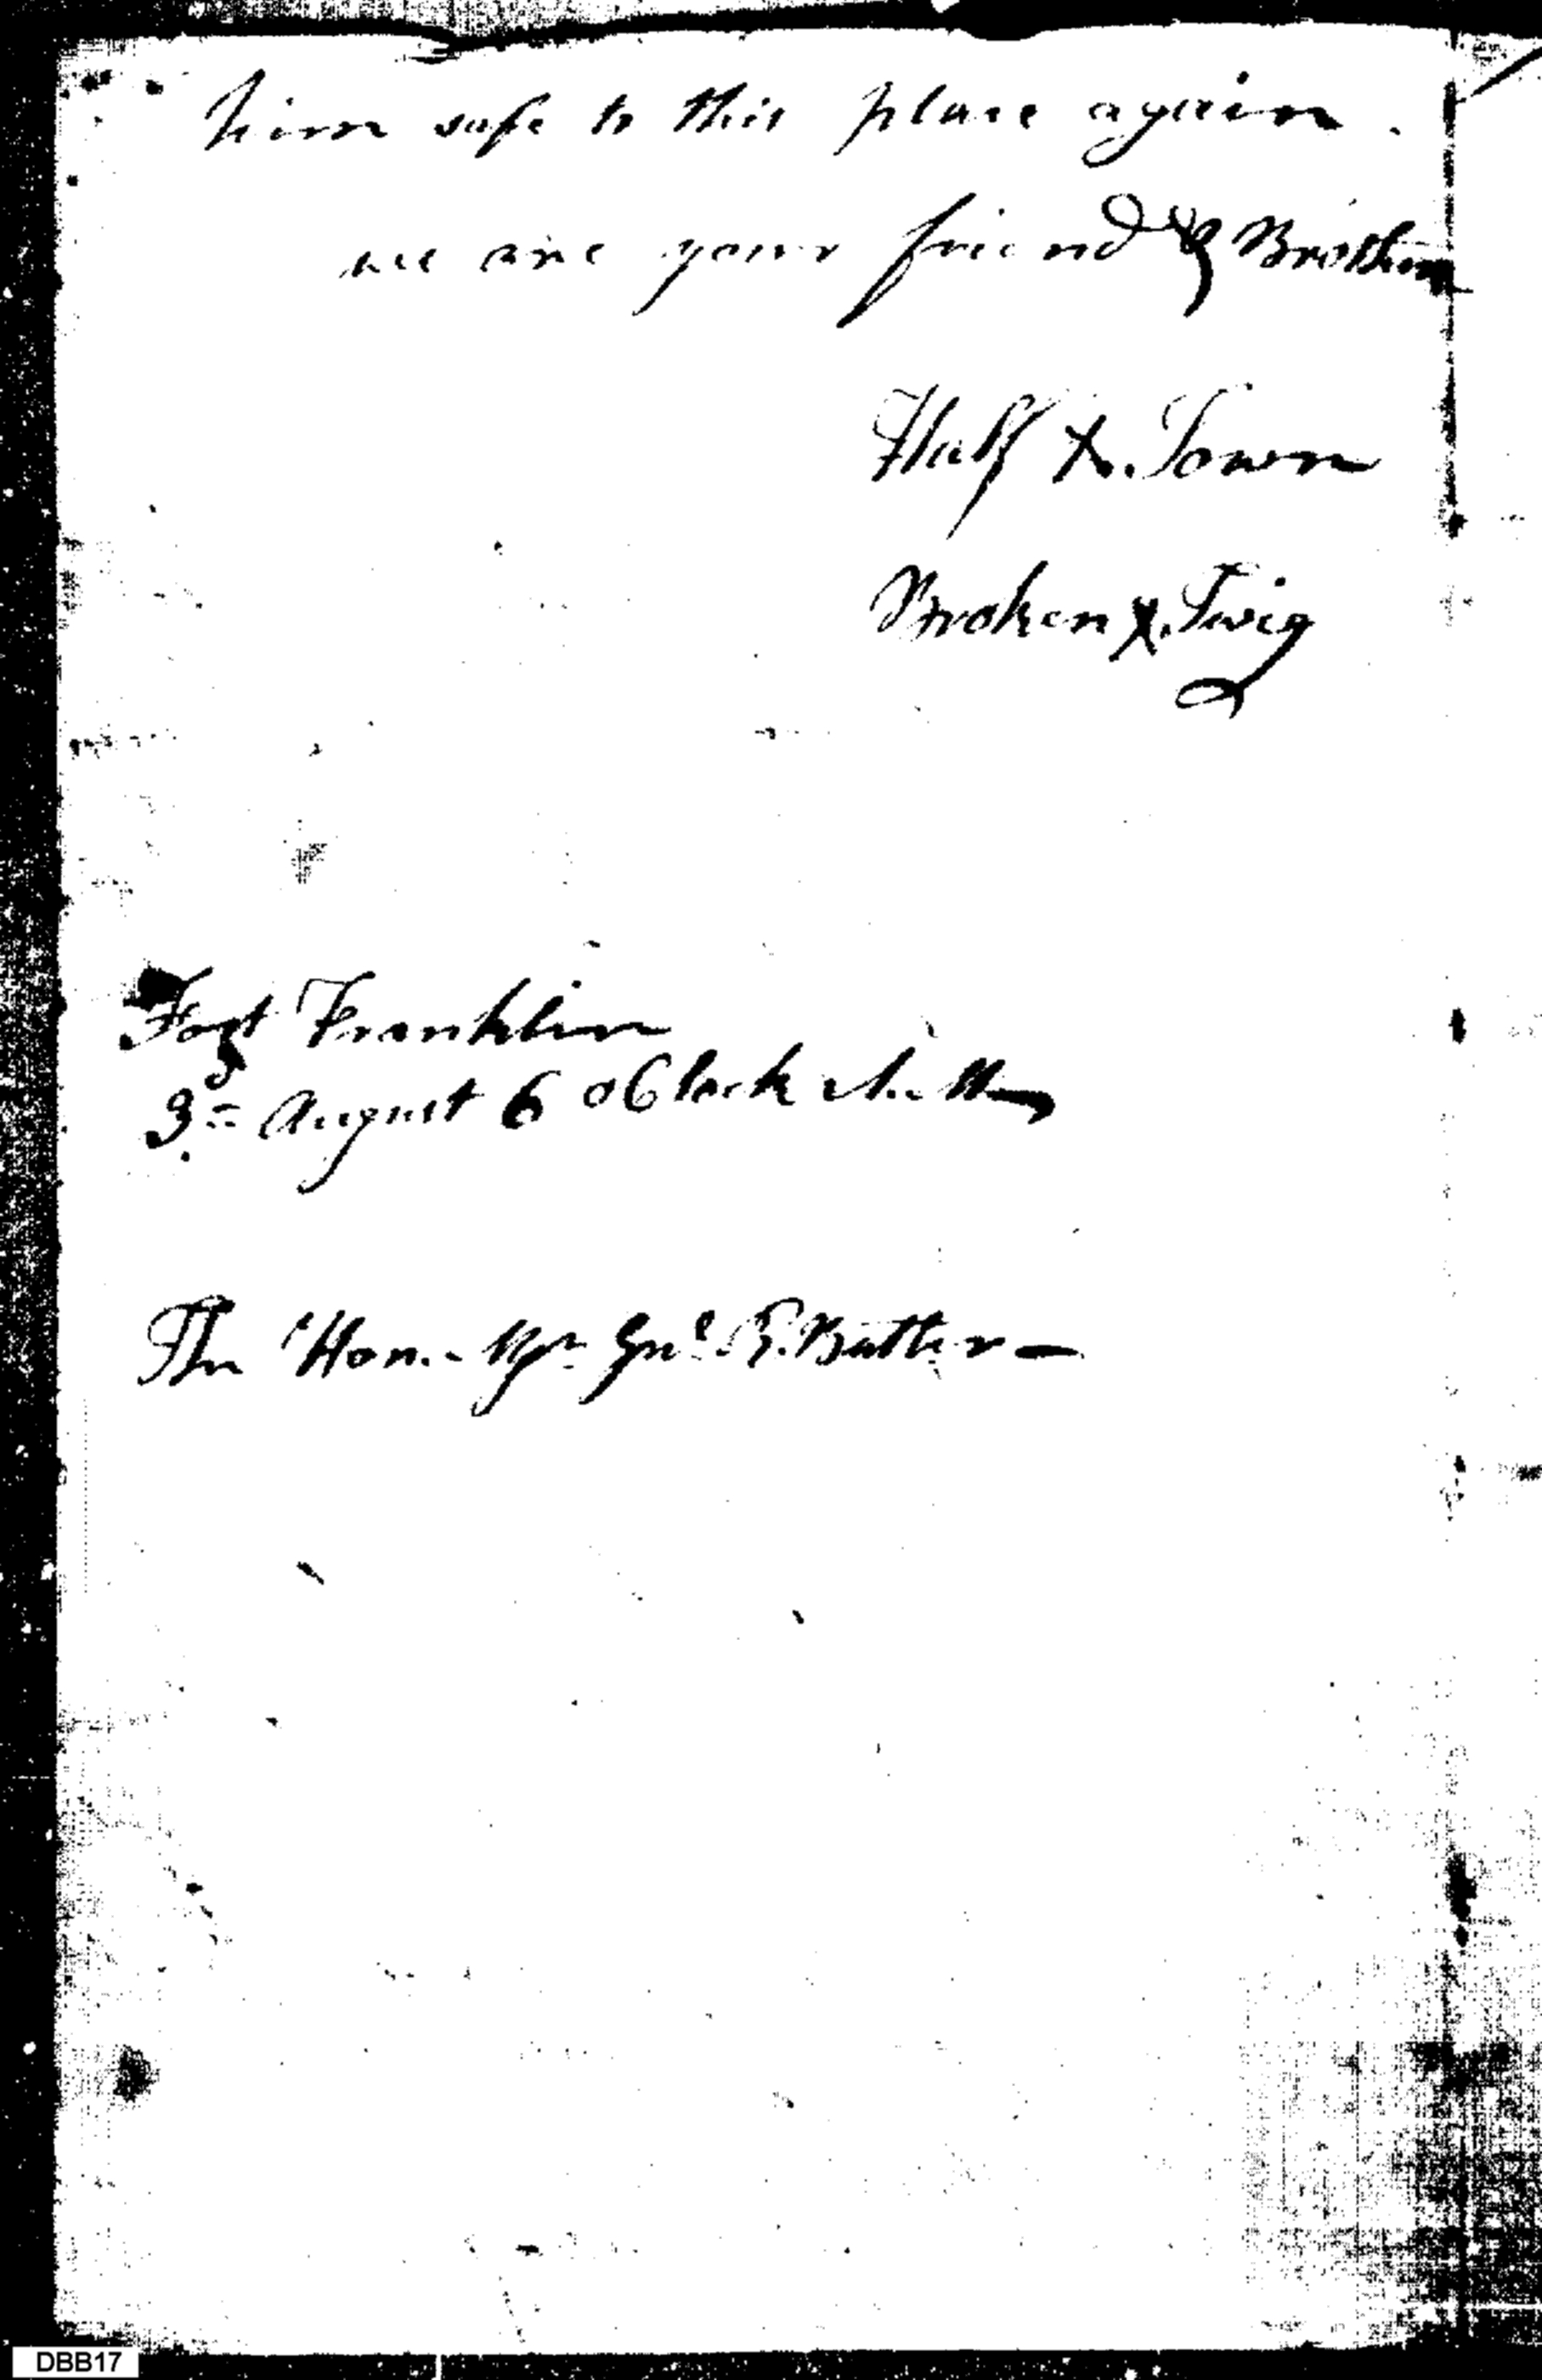 him safe to this place again.
we are your friend & Brothers
Half X. Town
Broken X. Twig
Fort Franklin
3d August 6 oClock
The Hon. Mjr Gnl R. Butler —
DBB17